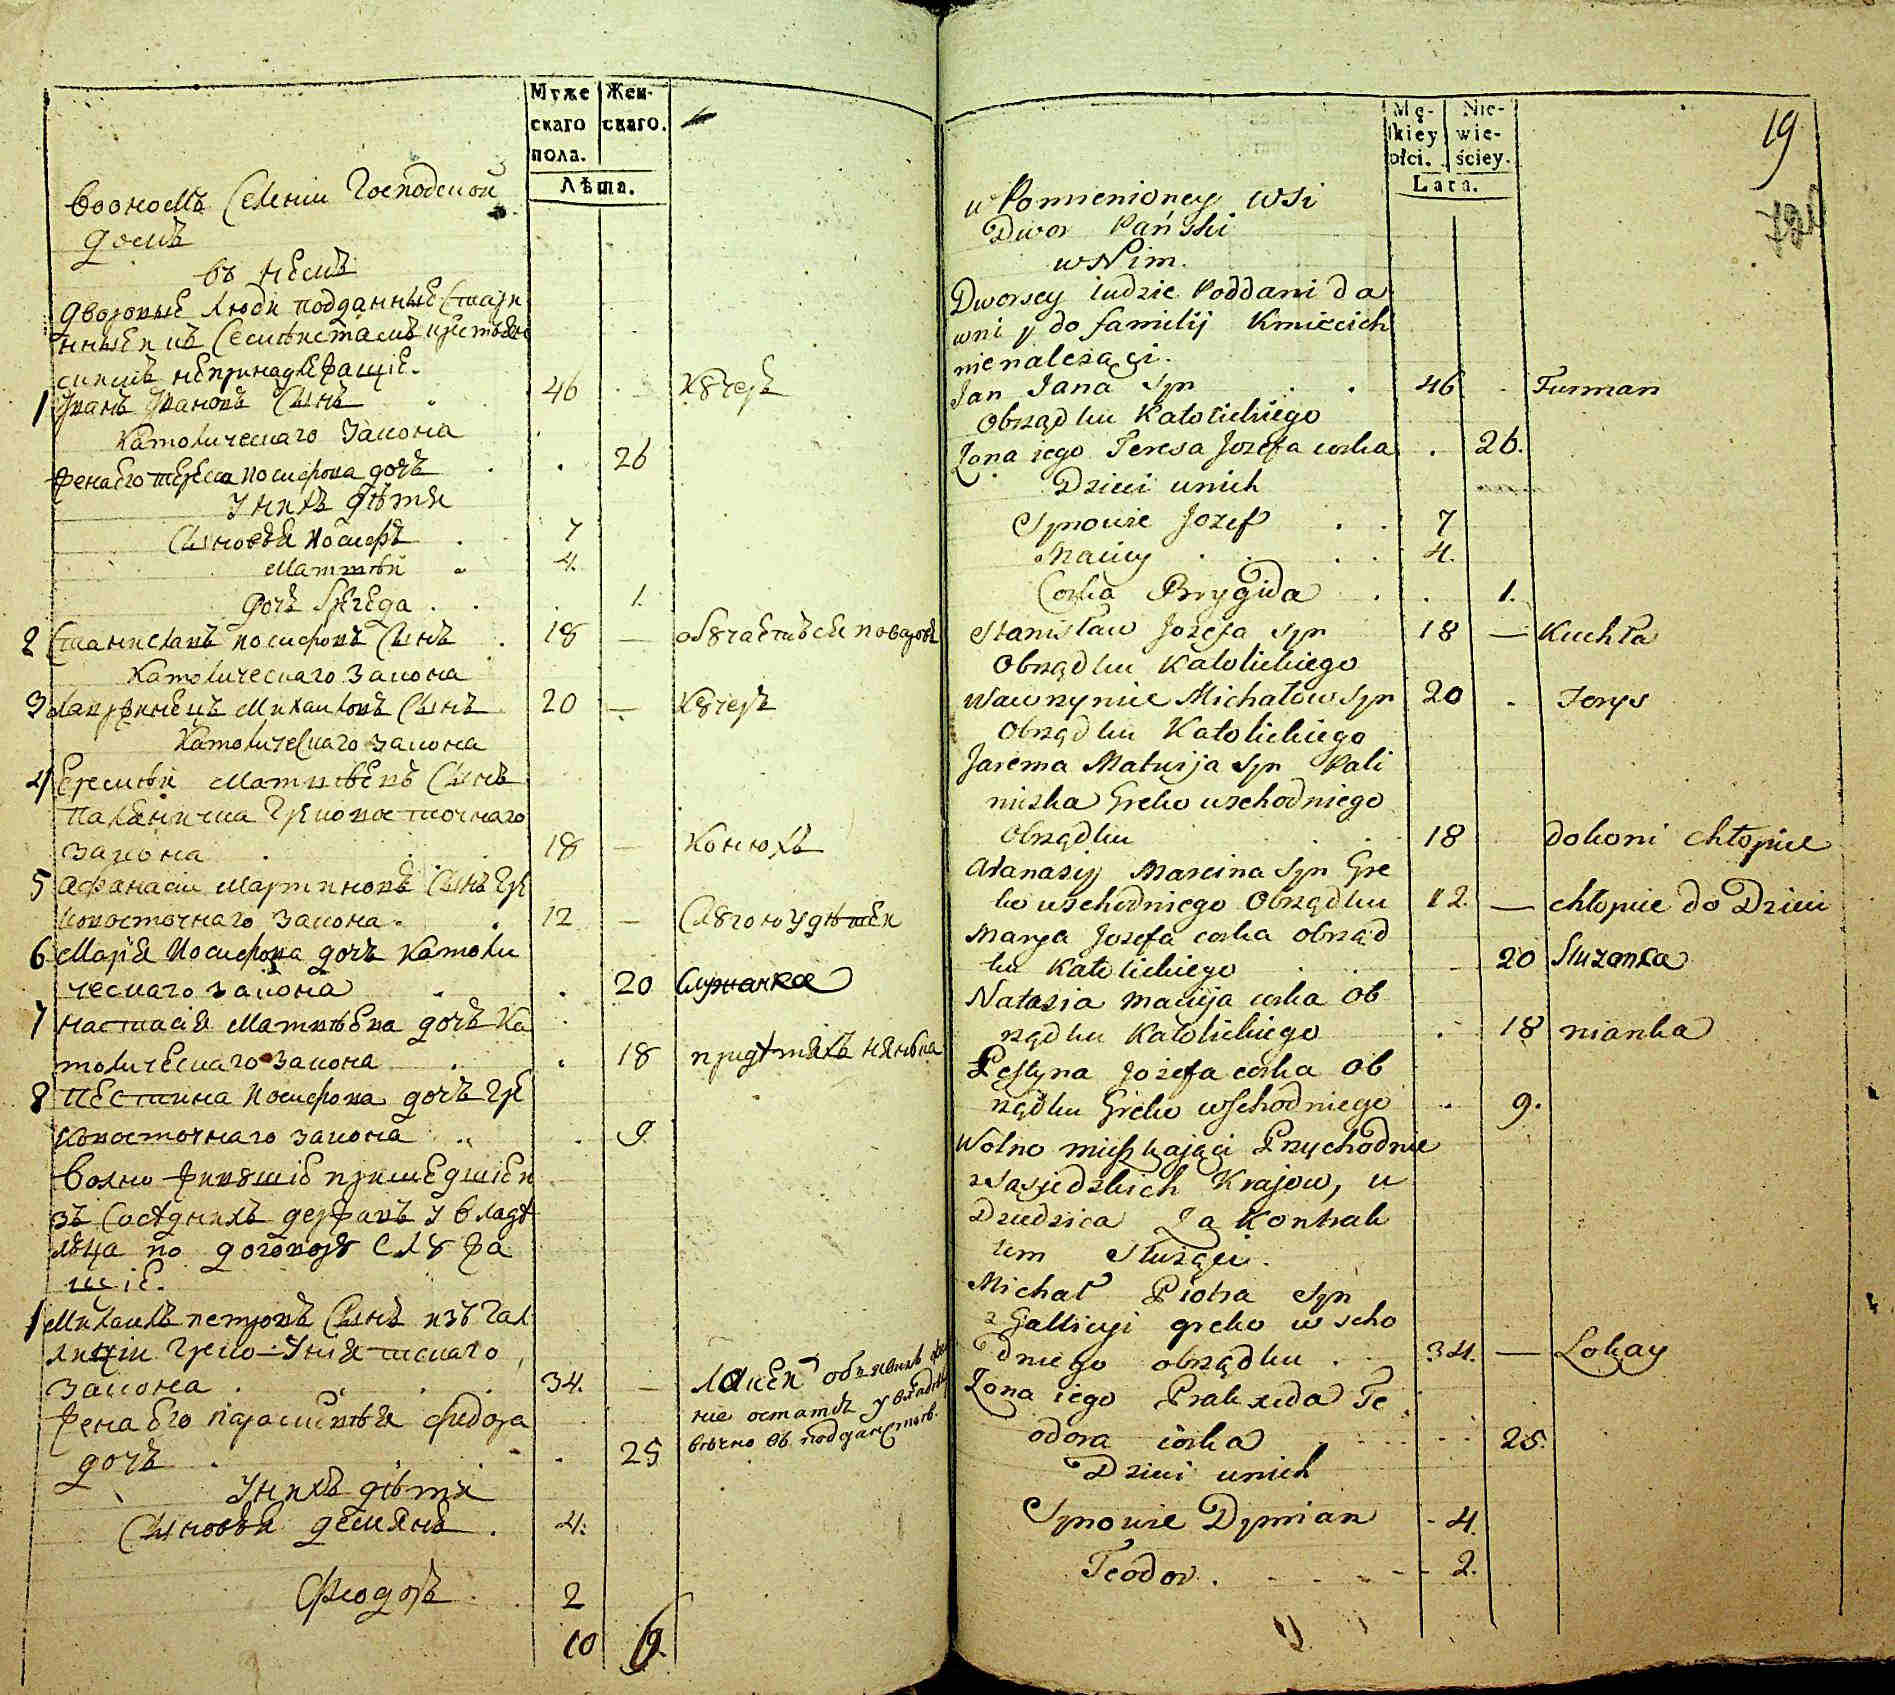 Муже Жен-
скаго скаго.
пола.
Лѣта.
Воономъ Селеніи Господской
домъ
въ немъ
дворовые люди подданные Стари
нные
непринадлежащіе.
1 Иванъ Ивановъ Сынъ 46 Кучеръ
Католическаго Закона
жена Его Тереса Иосифова дочь 26
У нихъ дѣти
Сыновья Иосифъ 7
Матвѣй 4.
дочь Бригида 1.
2 Станиславъ Иосифовъ Сынъ 18 — обучается поваровъ
Католическаго Закона
3 Лавринецъ Михаиловъ Сынъ 20 — Кучеръ
Католическаго Закона
4 Еремѣй Матвѣевъ Сынъ
Грековосточнаго
Закона 18 — Конюхъ
5 Афанасій Мартиновъ Сынъ Гре
ковосточнаго Закона 12 — Слугою у дѣтей
6 Марья Иосифова дочь Католи
ческаго Закона 20 Служанкою
7 Настасія Матвѣева дочь Ка
толическаго Закона 18 при дѣтяхъ нянька
8 Пестина Иосифова дочь Гре
ковосточнаго Закона 9
Волно живущіе пришедшіе и
зъ Сосѣднихъ державъ у владѣ
лца по договору Служа
щіе.
1 Михаилъ Петровъ Сынъ изъ Гал
лиціи Греко-Уніятскаго
Закона 34. — Лакей объявилъ
ніе остатъ у владѣл
вѣчно въ подданств.
жена Его Параскевія Фидора
дочь 25
У нихъ дѣти
Сыновья Демянъ 4.
Феодоръ 2
10 6
19
Mę- Nie-
kiey wie-
płci. ściey.
Lata.
w Pomienioney wsi
Dwor Pański
w Nim.
Dworscy ludzie Poddani da
wni y do familij Kmiecich
nienależący.
Jan Jana Syn 46 Furman
Obrządku Katolickiego
Żona iego Teresa Jozefa corka 26.
Dzieci unich
Synowie Jozef 7
Maciey 4.
Corka Brygida 1.
Stanisław Jozefa Syn 18 — Kuchta
Obrządku Katolickiego
Wawrzyniec Michałow Syn 20 Forys
Obrządku Katolickiego
Jarema Matwija Syn Pali
niczka Greko wschodniego
Obrządku 18 dokoni chłopiec
Atanasiy Marcina Syn Gre
ko wschodniego Obrządku 12. — chłopiec do Dzieci
Marya Jozefa corka obrząd
ku Katolickiego 20 Służanka
Natazia Macieja corka Ob
rządku Katolickiego 18 nianka
Pestyna Jozefa corka Ob
rządku Greko wschodniego 9.
Wolno mieszkający Przychodnie
z Sąsiedzkich Krajow, u
Dziedzica Za Kontrak
tem Służący.
Michał Piotra Syn
z Gallicyi greko wscho
dniego obrządku 34. — Lokay
Żona iego Prakseda Te
odora corka 25.
Dzieci unich
Synowie Dymian 4.
Teodor 2.